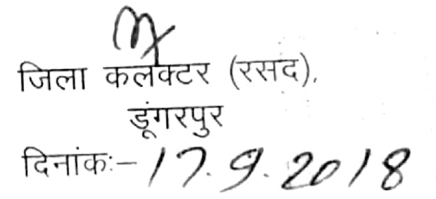 जिला कलेक्टर (रसद),
डूंगरपुर
दिनांकः– 17.9.2018